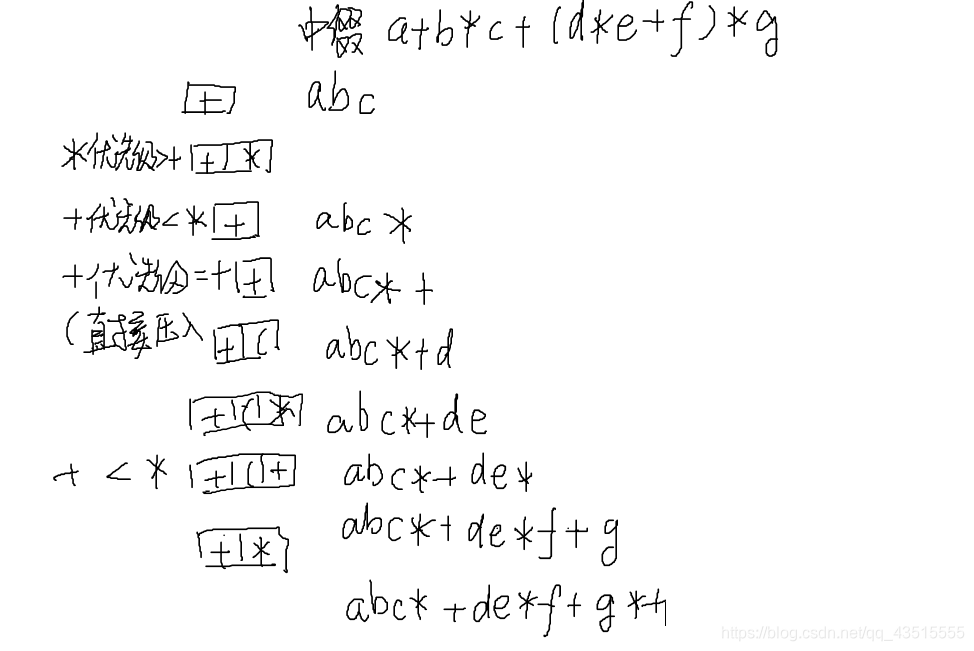 中缀 a+b*c+(d*e+f)*g
+ abc
*优先级>+ + *
+优先级<* + abc*
+优先级=+ + abc*+
(直接压入 + ( abc*+d
+ ( * abc*+de
+ < * + ( + abc*+de*
+ * abc*+de*f+g
abc*+de*f+g*+
https://blog.csdn.net/qq_43515555